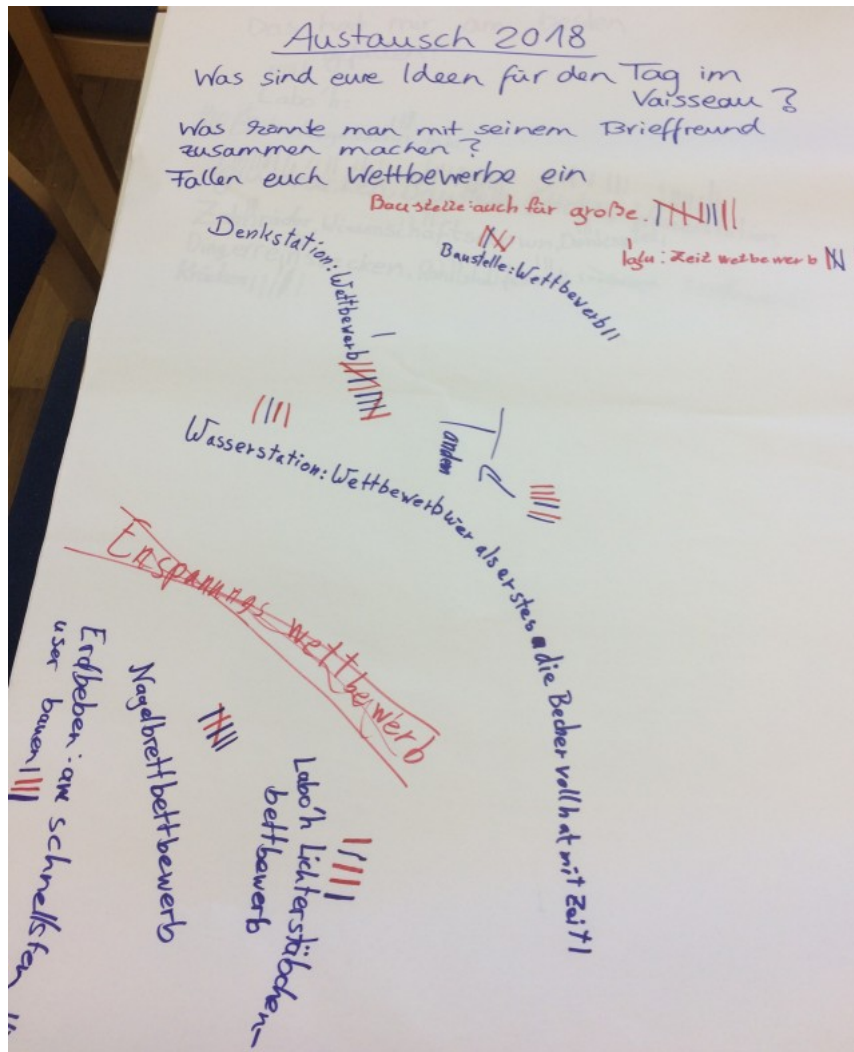 Austausch 2018
Was sind eure Ideen für den Tag im
Vaisseau?
Was könnte man mit seinem Brieffreund
zusammen machen?
Fallen euch Wettbewerbe ein
Baustelle: auch für große.
Denkstation: Wettbewerb
Baustelle: Wettbewerb
: Zeit wettbewerb
Tandem
Wasserstation: Wettbewerb wer als erstes die Becher voll hat mit Zeit
Enspannungs wettbewerb
Erdbeben: am schnellsten
user bauen
Nagelbrettbettbewerb
Labo'h Lichterstäbchen-
bettbewerb